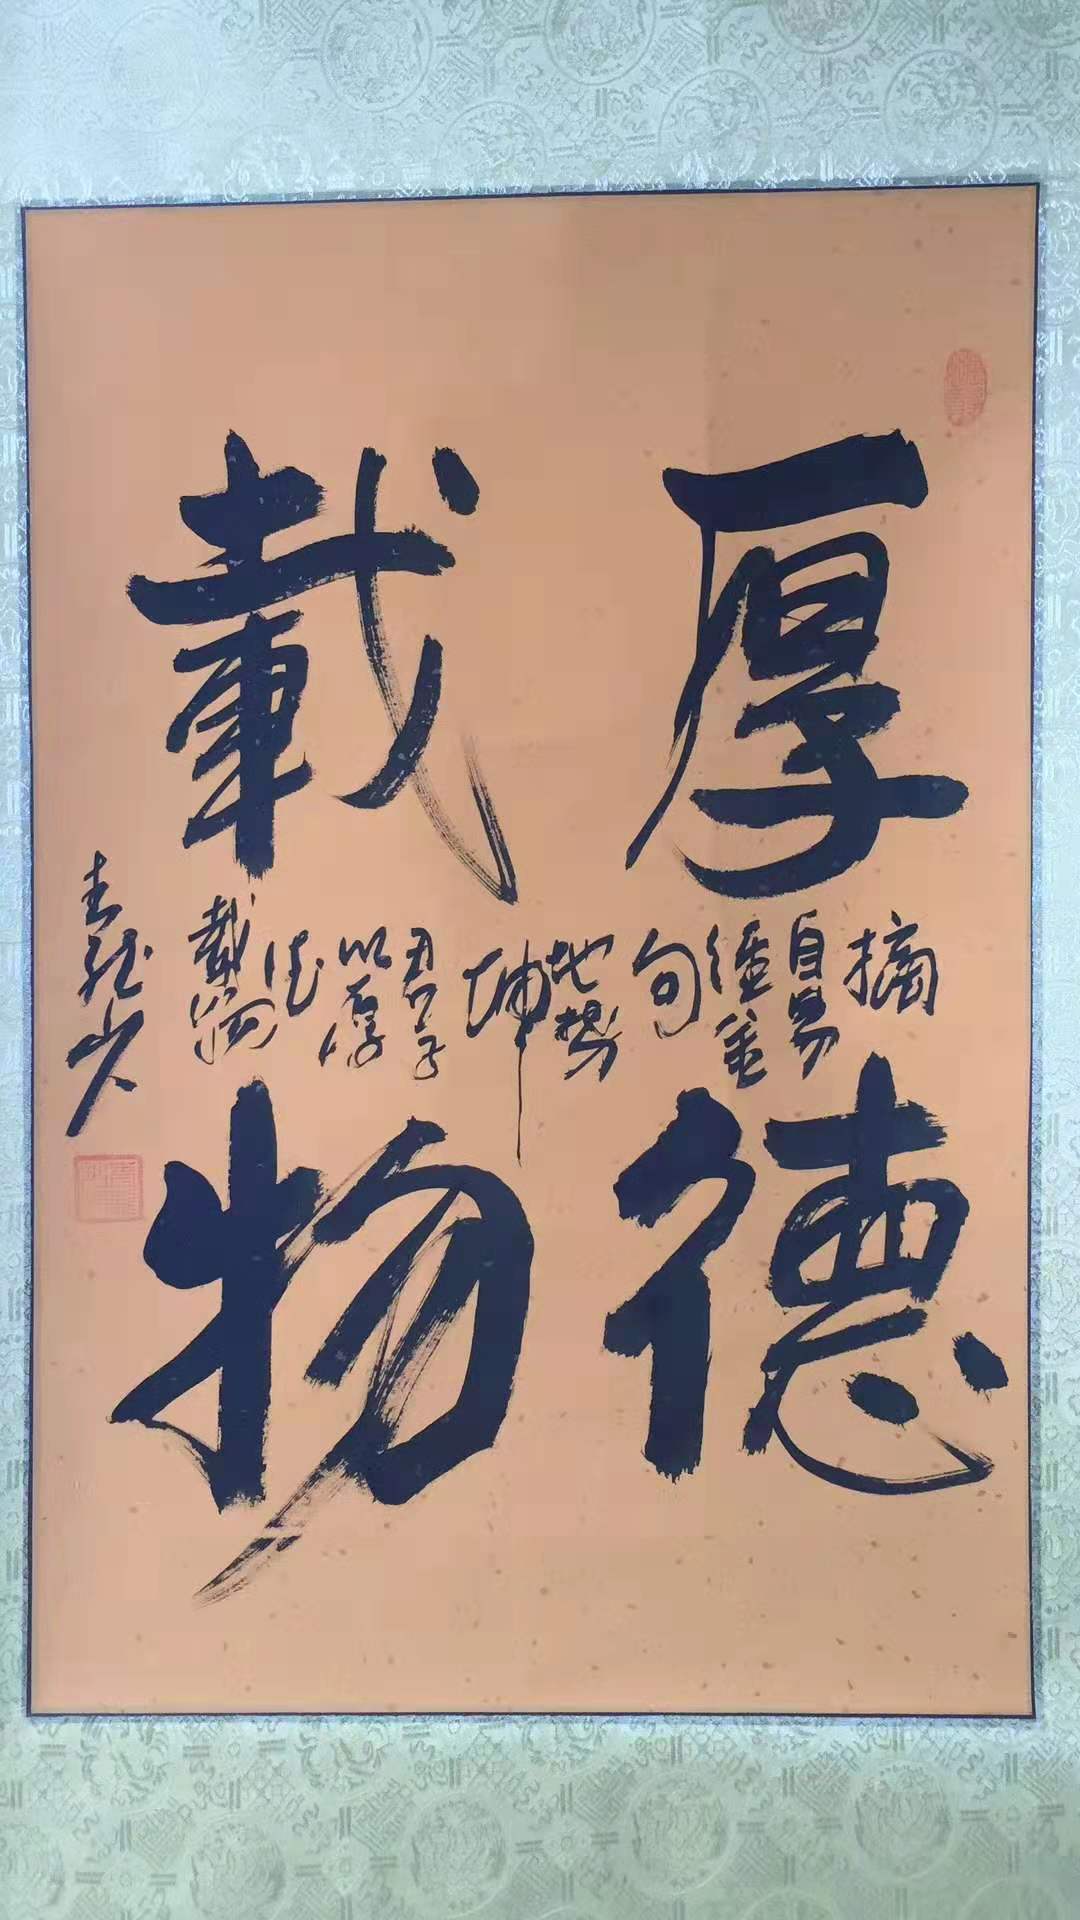 厚德
載物
摘
自易
經金
句
地勢
坤
君子
以厚
德
載物